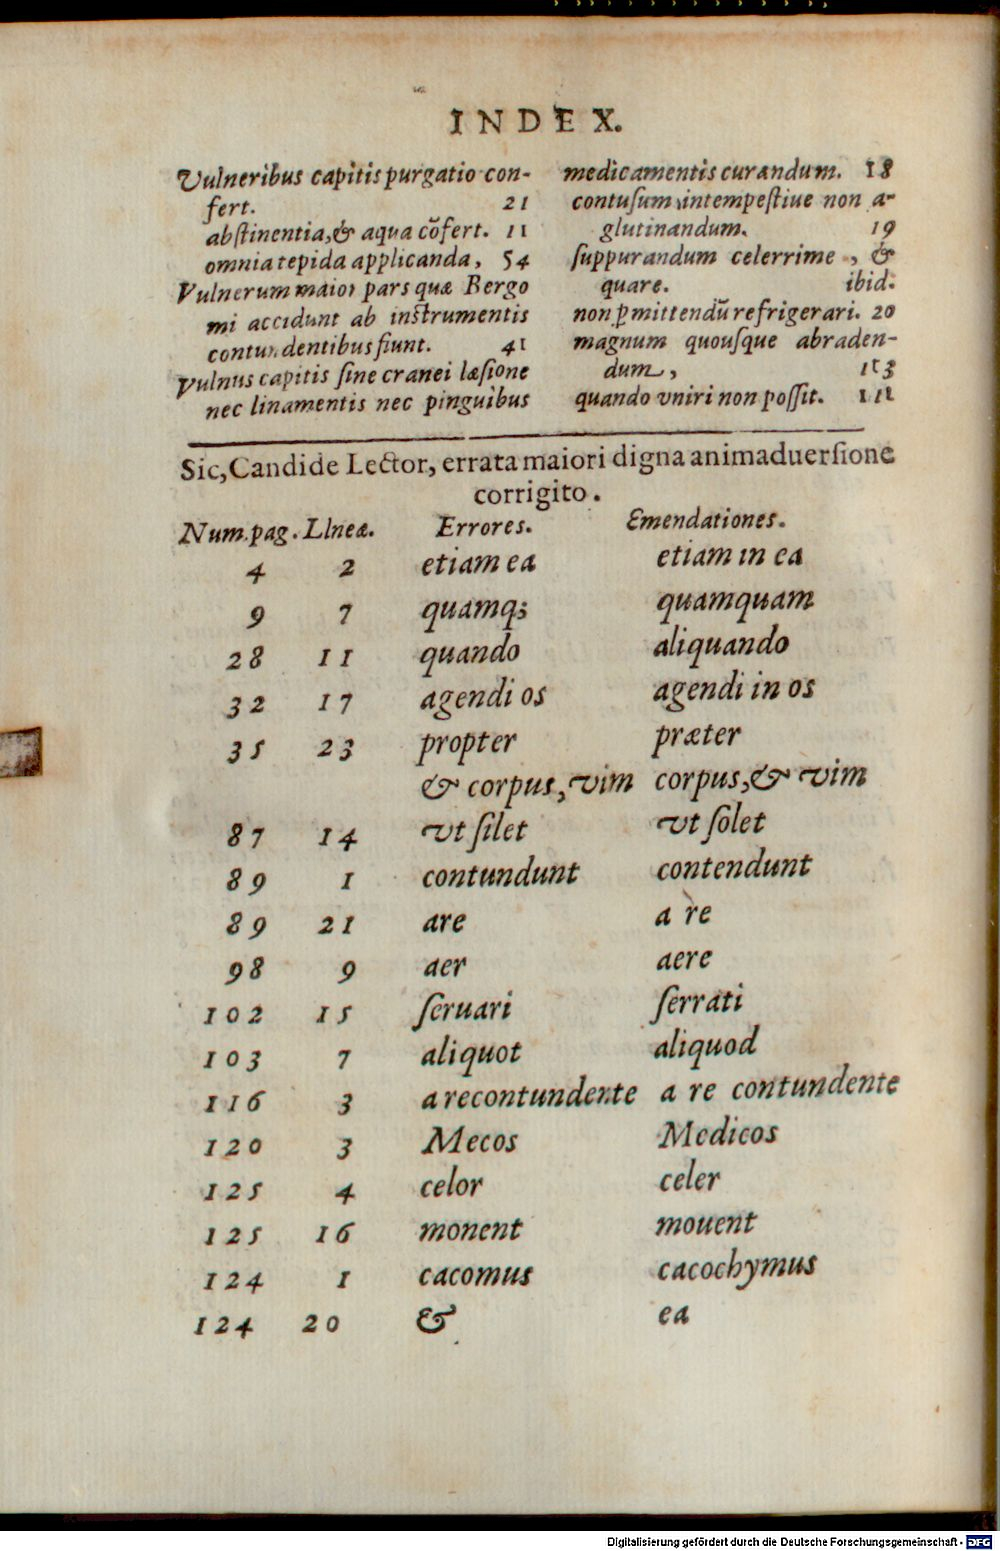 INDEX.
Vulneribus capitis purgatio con-
fert. 21
abstinentia, & aqua cōfert. 11
omnia tepida applicanda, 54
Vulnerum maior pars quæ Bergo
mi accidunt ab instrumentis
contundentibus fiunt. 41
Vulnus capitis sine cranei læsione
nec linamentis nec pinguibus
medicamentis curandum. 18
contusum intempestiue non a-
glutinandum. 19
suppurandum celerrime, &
quare. ibid.
non ꝑmittendū refrigerari. 20
magnum quousque abraden-
dum,
quando vniri non possit. 111
Sic, Candide Lector, errata maiori digna animaduersione
corrigito.
Num.pag. Lineæ. Errores. Emendationes.
4 2 etiam ea etiam in ea
9 7 quamq; quamquam
28 11 quando aliquando
32 17 agendi os agendi in os
35 23 propter præter
& corpus, vim corpus, & vim
87 14 vt silet vt solet
89 1 contundunt contendunt
89 21 are a re
98 9 aer aere
102 15 seruari serrati
103 7 aliquot aliquod
116 3 a recontundente a re contundente
120 3 Mecos Medicos
125 4 celor celer
125 16 monent mouent
124 1 cacomus cacochymus
124 20 & ea
Digitalisierung gefördert durch die Deutsche Forschungsgemeinschaft - DFG